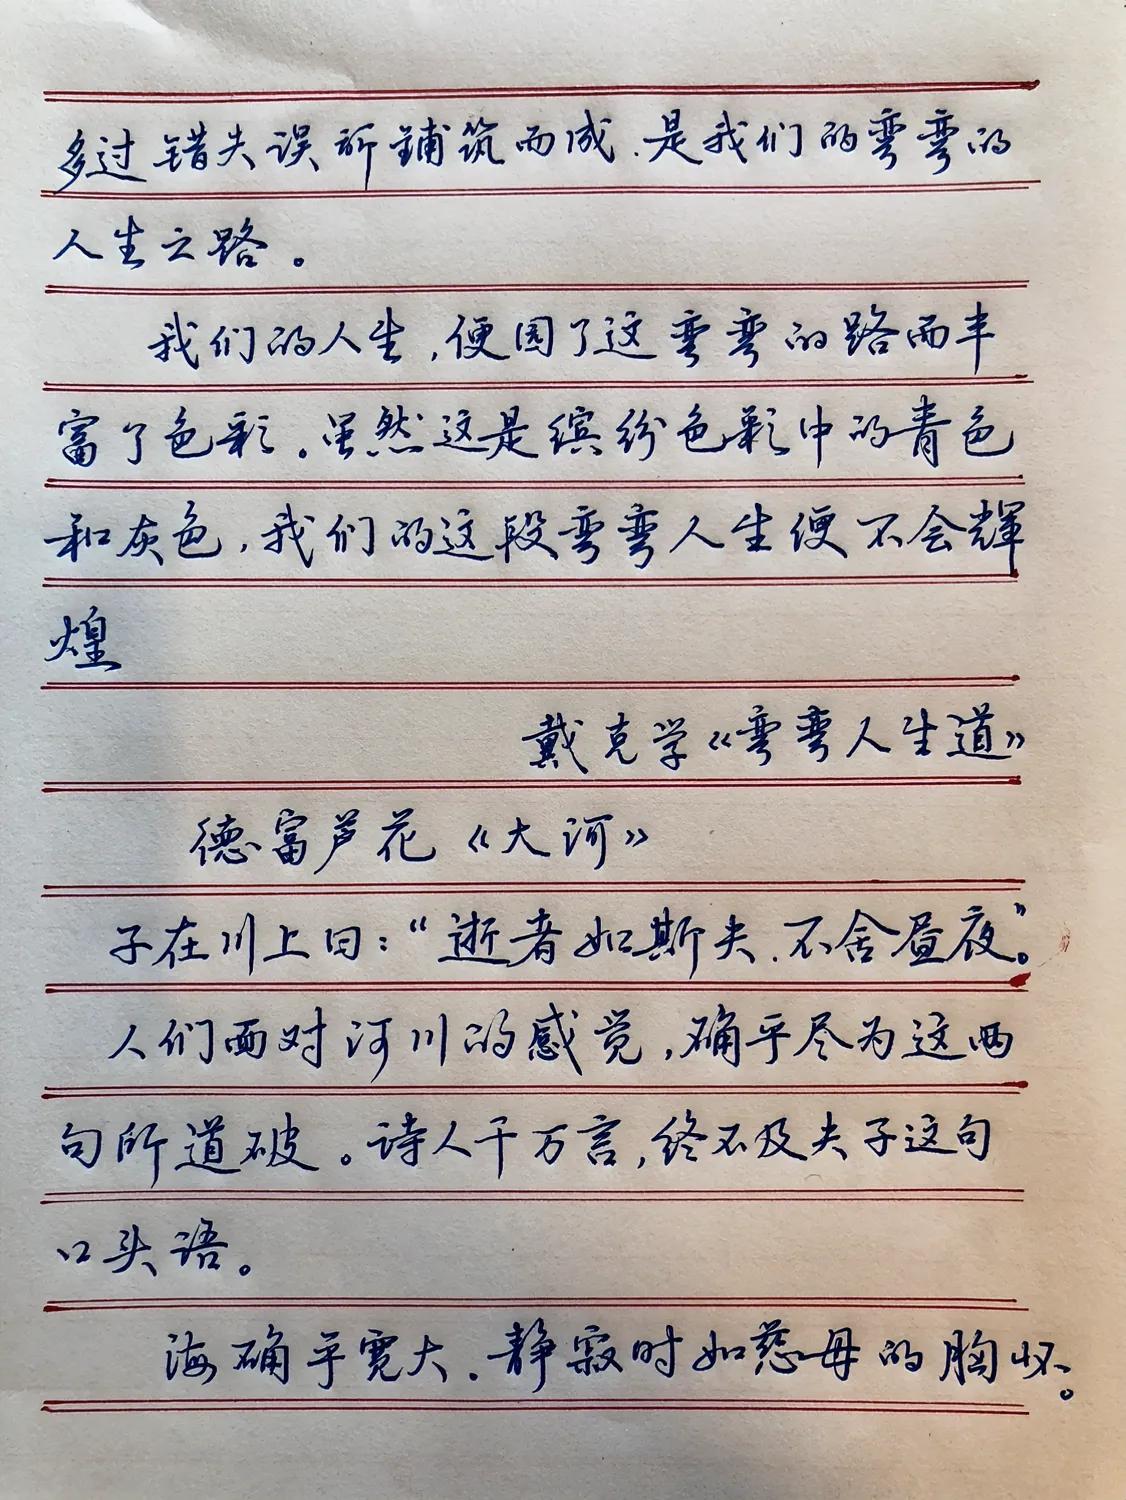 多过错失误所铺筑而成.是我们的弯弯的
人生之路。
我们的人生,便因了这弯弯的路而丰
富了色彩。虽然这是缤纷色彩中的青色
和灰色,我们的这段弯弯人生便不会辉
煌
戴克学《弯弯人生道》
德富芦花《大河》
子在川上曰:“逝者如斯夫.不舍昼夜”。
人们面对河川的感觉,确乎尽为这两
句所道破。诗人千万言,终不及夫子这句
口头语。
海确乎宽大.静寂时如慈母的胸怀。